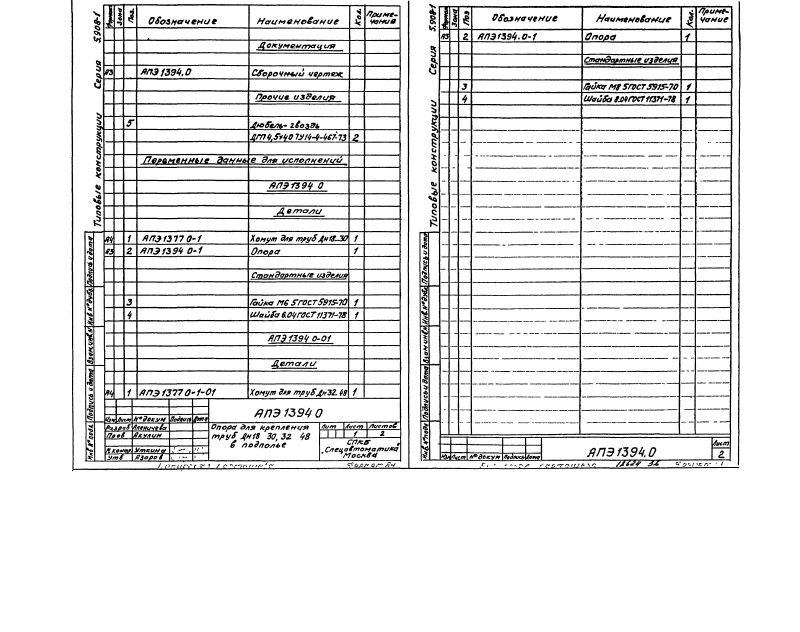 Типовые конструкции Серия 5.908-1
Формат Зона Поз. Обозначение Наименование Кол. Приме-
чание
Документация
А3 АПЭ1394.0 Сборочный чертеж
Прочие изделия
5 Дюбель-гвоздь
ДГП 4,5×40 ТУ14-4-467-73 2
Переменные данные для исполнений
АПЭ1394 0
Детали
А4 1 АПЭ1377 0-1 Хомут для труб Дн18...30 1
А3 2 АПЭ1394 0-1 Опора 1
Стандартные изделия
3 Гайка М6 5 ГОСТ 5915-70 1
4 Шайба 6.04 ГОСТ 11371-78 1
АПЭ1394 0-01
Детали
А4 1 АПЭ1377 0-1-01 Хомут для труб Дн32 48 1
Инв. № подл. Подпись и дата Взам. инв. № Инв. № дубл. Подпись и дата
АПЭ1394 0
Изм Лист № докум Подпись Дата
Разраб
Пров Якулин
Н.контр. Уткина
Утв Азаров
Опора для крепления
труб Дн18 30, 32 48
в подполье
Лит Лист Листов
1 2
СПКБ
„Спецавтоматика"
Москва
Формат А4
Типовые конструкции Серия 5.908-1
Формат Зона Поз Обозначение Наименование Кол. Приме-
чание
А3 2 АПЭ1394.0-1 Опора 1
Стандартные изделия
3 Гайка М8 5 ГОСТ 5915-70 1
4 Шайба 8.04 ГОСТ 11371-78 1
Инв. № подл Подпись и дата Взам инв. № Инв. № дубл. Подпись и дата
Изм Лист № докум Подпись Дата
АПЭ1394.0
Лист
2